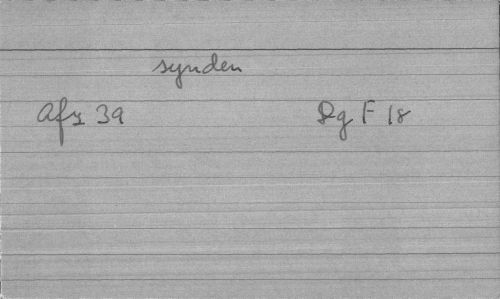 synden
Afz 39 Dg F 18